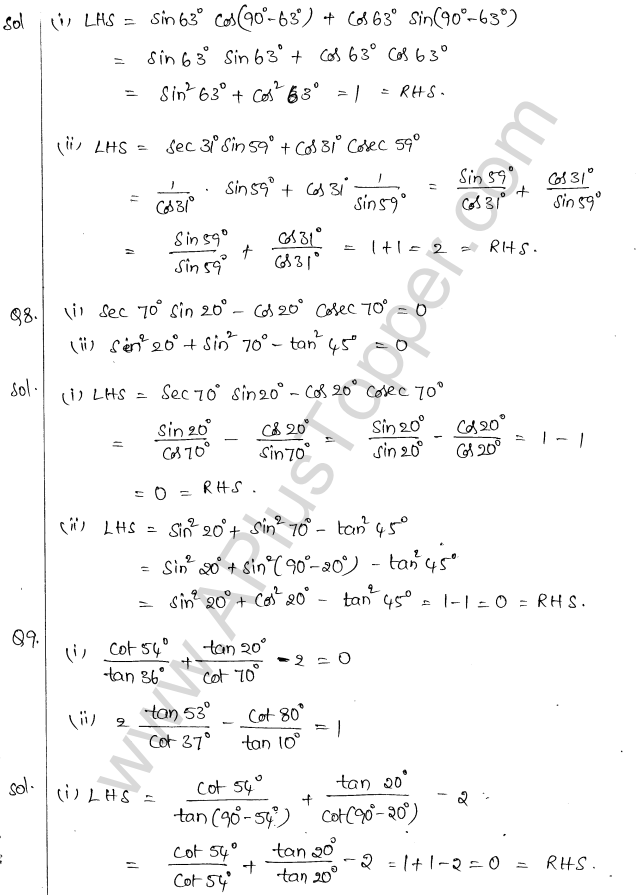 Sol (i) LHS = Sin63° Cos(90°-63°) + Cos63° Sin(90°-63°)
= Sin63° Sin63° + Cos63° Cos63°
= Sin²63° + Cos²63° = 1 = RHS.
(ii) LHS = Sec31° Sin59° + Cos31° Cosec 59°
= 1/Cos31° . Sin59° + Cos31° 1/Sin59° = Sin59°/Cos31° + Cos31°/Sin59°
= Sin59°/Sin59° + Cos31°/Cos31° = 1+1 = 2 = RHS.
Q8. (i) Sec 70° Sin 20° - Cos20° Cosec70° = 0
(ii) Sin²20° + Sin²70° - tan²45° = 0
Sol. (i) LHS = Sec70° Sin20° - Cos20° Cosec70°
= Sin20°/Cos70° - Cos20°/Sin70° = Sin20°/Sin20° - Cos20°/Cos20° = 1 - 1
= 0 = RHS.
(ii) LHS = Sin²20° + Sin²70° - tan²45°
= Sin²20° + Sin²(90°-20°) - tan²45°
= Sin²20° + Cos²20° - tan²45° = 1-1 = 0 = RHS.
Q9. (i) Cot54°/tan36° + tan20°/Cot70° - 2 = 0
(ii) 2 tan53°/Cot37° - Cot80°/tan10° = 1
Sol. (i) LHS = Cot54°/tan(90°-54°) + tan20°/Cot(90°-20°) - 2
= Cot54°/Cot54° + tan20°/tan20° - 2 = 1+1-2 = 0 = RHS.
www.APlusTopper.com